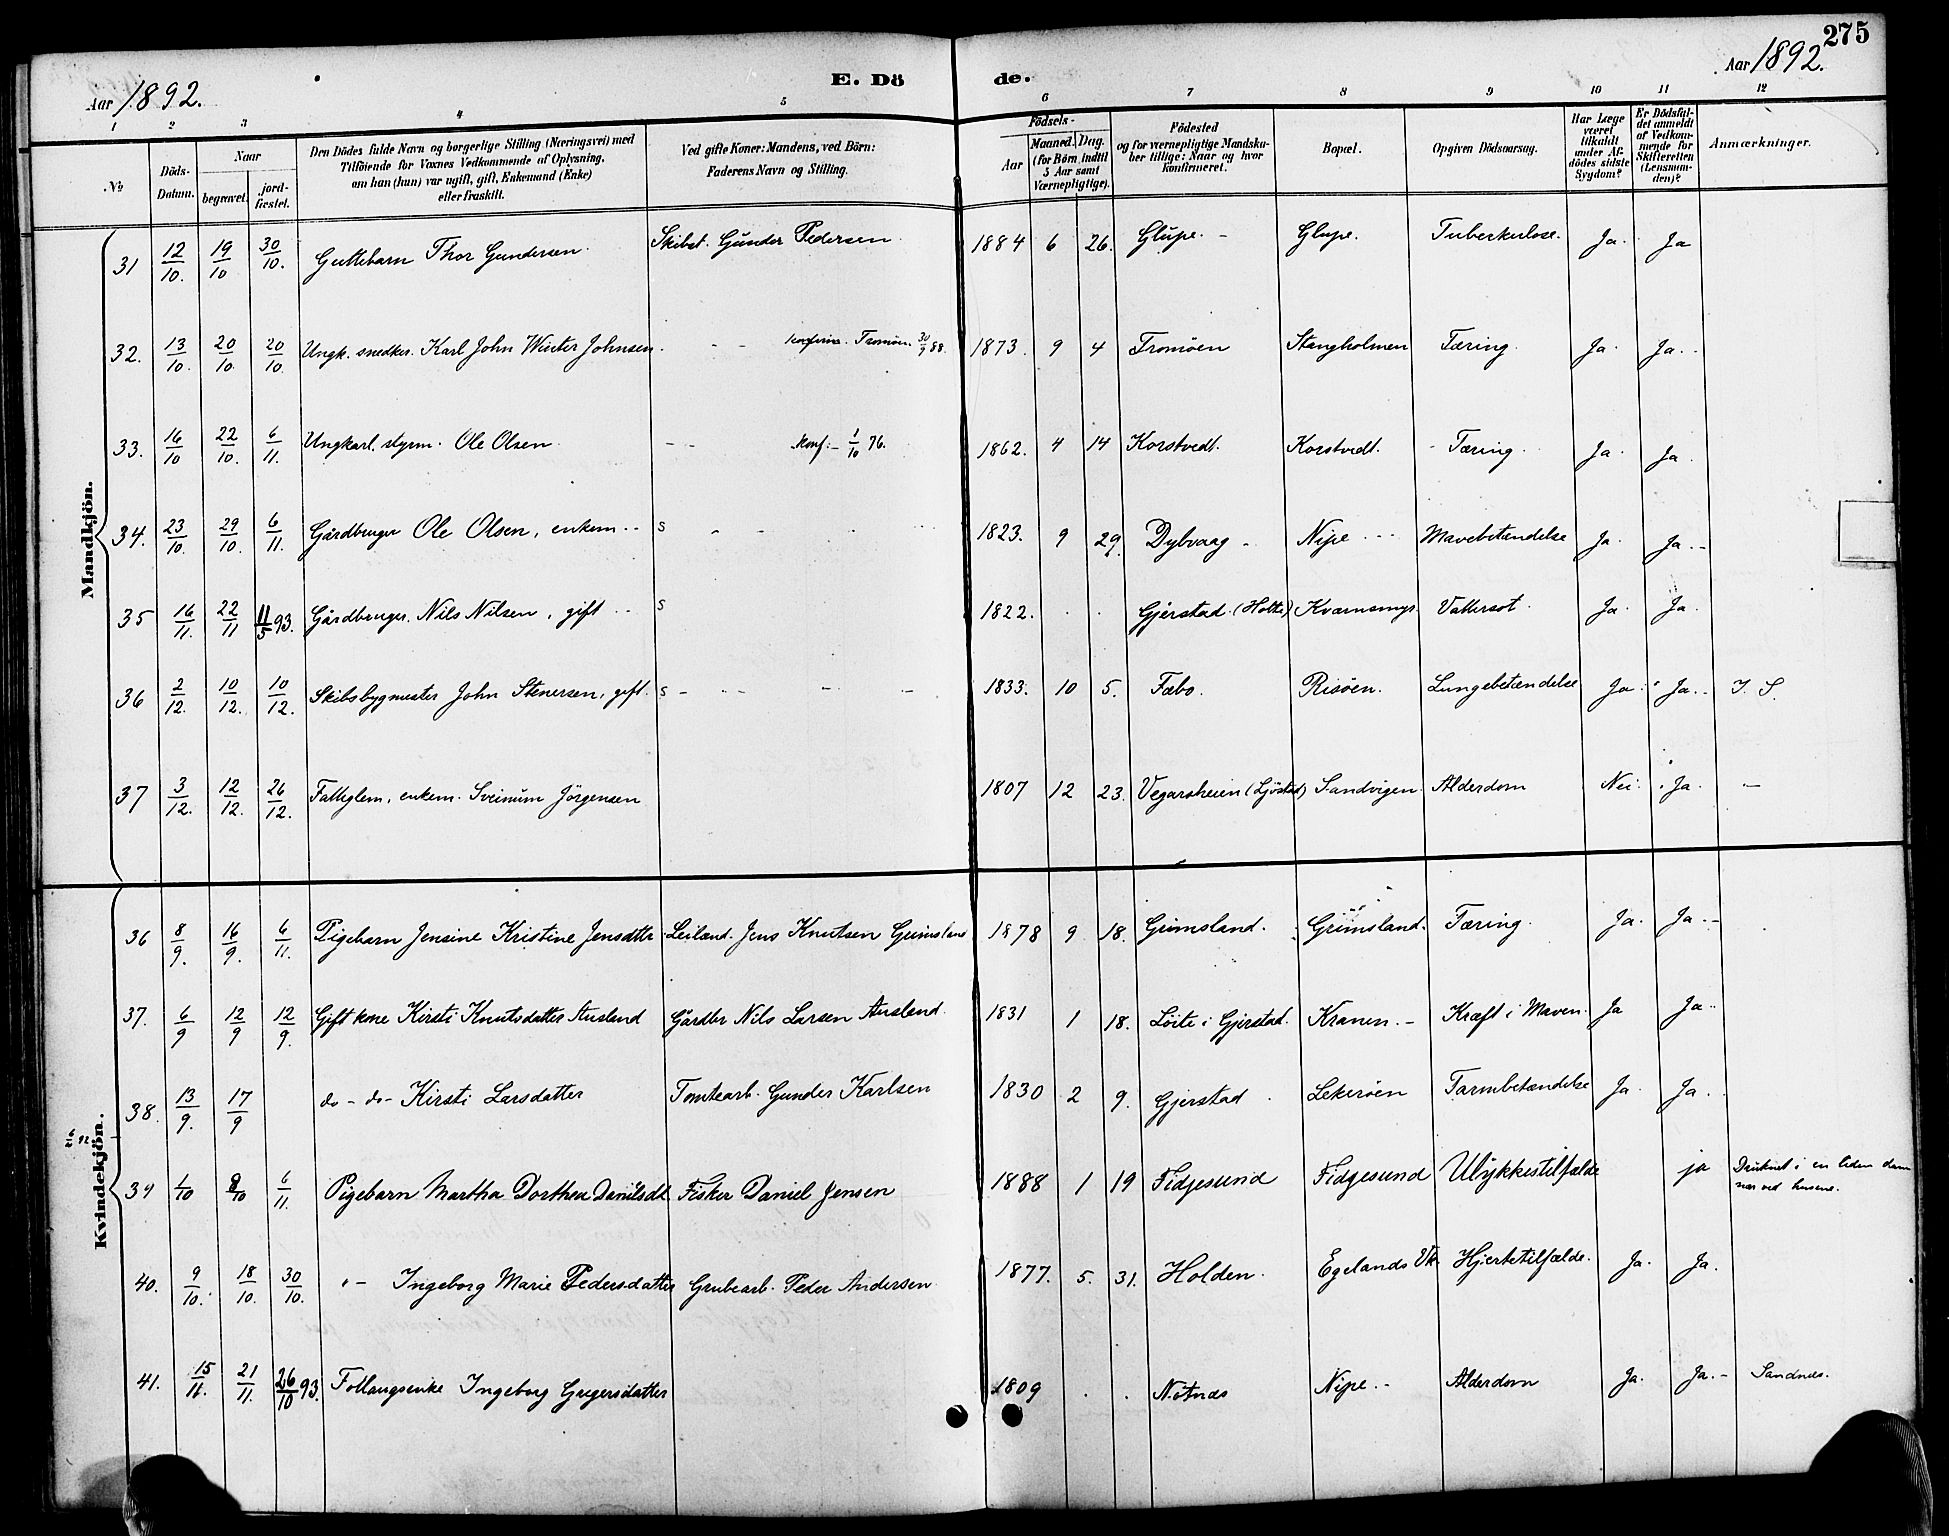 275
Aar 1892. E. Dö de. Aar 1892.
1 2 3 4 5 6 7 8 9 10 11 12
No
Döds-Datum.
Naar
begravet. jord-fæstet.
Den Dödes fulde Navn og borgerlige Stilling (Næringsvei) med
Tilföiende for Voxnes Vedkommende af Oplysning,
om han (hun) var ugift, gift, Enkemand (Enke)
eller fraskilt.
Ved gifte Koner: Mandens, ved Börn:
Faderens Navn og Stilling.
Födsels-
Aar Maaned. Dag.
(for Børn indtil
5 Aar samt
Værnepligtige).
Födested
og for værnepligtige Mandska-
ber tillige: Naar og hvor
konfirmeret.
Bopæl.
Opgiven Dödsaarsag.
Har Læge
været
tilkaldt
under Af-
dödes sidste
Sygdom?
Er Dödsfal-
det anmeldt
af Vedkom-
mende for
Skifteretten
(Lensman-
den)?
Anmærkninger.
Mandkjön.
31 12/10. 19/10 30/10. Guttebarn Thor Gundersen. Skibst. Gunder Pedersen. 1884 6 26. Glupe. - Glupe. Tuberkulose. Ja. Ja
32. 13/10. 20/10. 20/10. Ungk. snedker. Karl John Winter Johnsen. - - konfirm. Tromøen. 30/9 88. 1873. 9 4 Tromöen Stangholmen Tæring. Ja. Ja.
33. 16/10 22/10. 6/11. Ungkarl. styrm. Ole Olsen. - - konf. - 1/10 76. 1862. 4 14 Korstvedt. Korstvedt. - Tæring. Ja. Ja.
34. 23/10. 29/10. 6/11. Gårdbruger Ole Olsen, enkem. s - - 1823. 9 29. Dybvaag - Nipe Mavebetændelse Ja. Ja. -
35 16/11. 22/11 11/5 93. Gårdbruger. Nils Nilsen, gift s 1822. Gjerstad (Holte) Kværnsmyr. Vattersot. Ja. Ja.
36 2/12. 10/12. 10/12. Skibsbygmester John Stenersen, gift. s - - - - 1833. 10 5. Fæbo. Risöen. Lungebetændelse Ja. Ja. I. S.
37 3/12. 12/12. 26/12. Fattiglem, enkem. Svinum Jörgensen 1807 12 23. Vegarsheien (Ljöstad) Sandvigen. Alderdom Nei. Ja. -
Kvindekjön.
36 8/9. 16/9. 6/11. Pigebarn Jensine Kristine Jensdtr. Leilænd. Jens Knutsen Grimsland 1878 9 18. Grimsland. Grimsland. Tæring. Ja. Ja. -
37. 6/9 12/9 12/9. Gift kone Kirsti Knutsdatter Ausland Gårdbr Nils Larsen Ausland. 1831 1 18. Löite i Gjerstad. Kranen. - Kræft i Maven. Ja Ja.
38. 13/9. 17/9 do - do - Kirsti Larsdatter Tomtearb. Gunder Karlsen 1830 2 9. Gjerstad Lekeröen Tarmbetændelse Ja. Ja.
39 1/10 8/10 6/11. Pigebarn Martha Dorthea Danilsdt. Fisker Daniel Jensen 1888 1 19 Fidjesund Fidgesund Ulykkestilfælde ja Druknet i en liden dam
nær ved husene.
40. 9/10. 18/10. 30/10. " - Ingeborg Marie Pedersdatter Grubearb. Peder Andersen. 1877. 5. 31. Holden. Egelands Vk. Hjertetilfælde. Ja. Ja.
41. 15/11. 21/11. 26/10 93. Follaugsenke Ingeborg Gregersdatter 1809 Nötnæs Nipe. - Alderdom Ja. Ja. - Sandnæs.